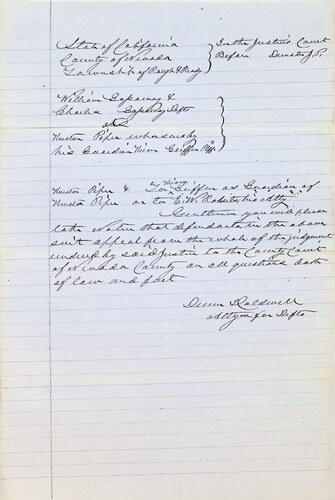 State of California } In the Justice Court
County of Nevada } Before Dunster J. P.
Township of Rough & Ready
William Gassaway &
Charles Gassaway Defts
ads
Huston Piper who sues by
his Guardian Hiram Griffin Plff
Huston Piper & to Hiram Griffin as Guardian of
Huston Piper or to E. W. Roberts his Atty
Gentlemen you will please
take Notice that defendants in the above
suit appeal from the whole of the judgment
rendered by said Justice to the County Court
of Nevada County on all questions both
of law and fact
Caldwell
Attys for Defts